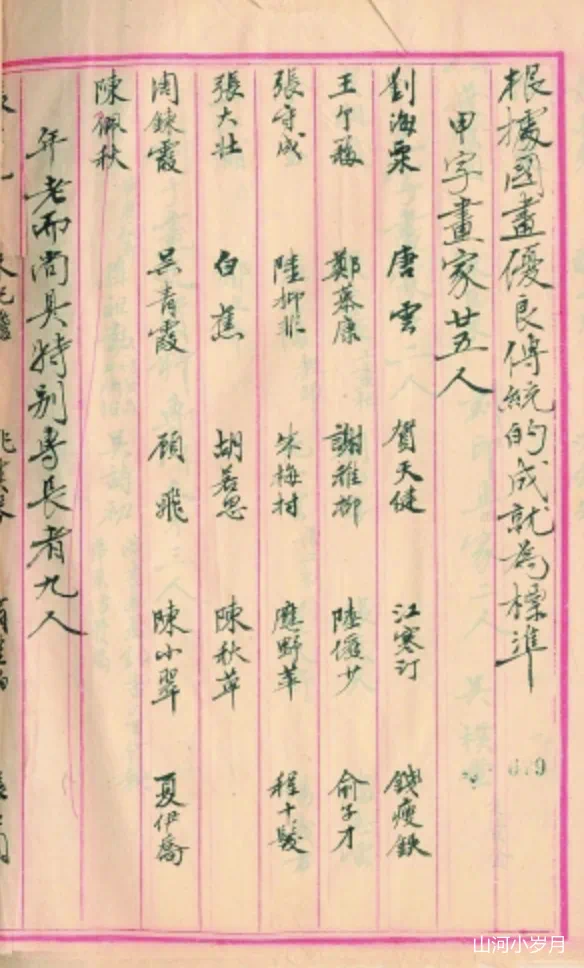 根據國畫優良傳統的成就為標準
679
甲字畫家廿五人
劉海粟 唐雲 賀天健 江寒汀 錢瘦鉄
王个簃 鄭慕康 謝稚柳 陸儼少 俞子才
張守成 陸抑非 朱梅村 應野苹 程十髮
張大壯 白蕉 胡若思 陳秋草
周鍊霞 吳青霞 顧飛 陳小翠 夏伊喬
陳佩秋
年老而尚具特别専長者九人
山河小岁月